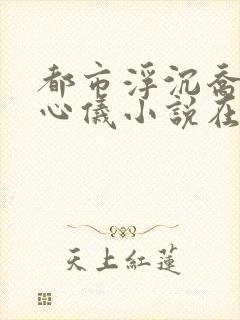 都市浮沉喬
心儀小說在
天上紅蓮